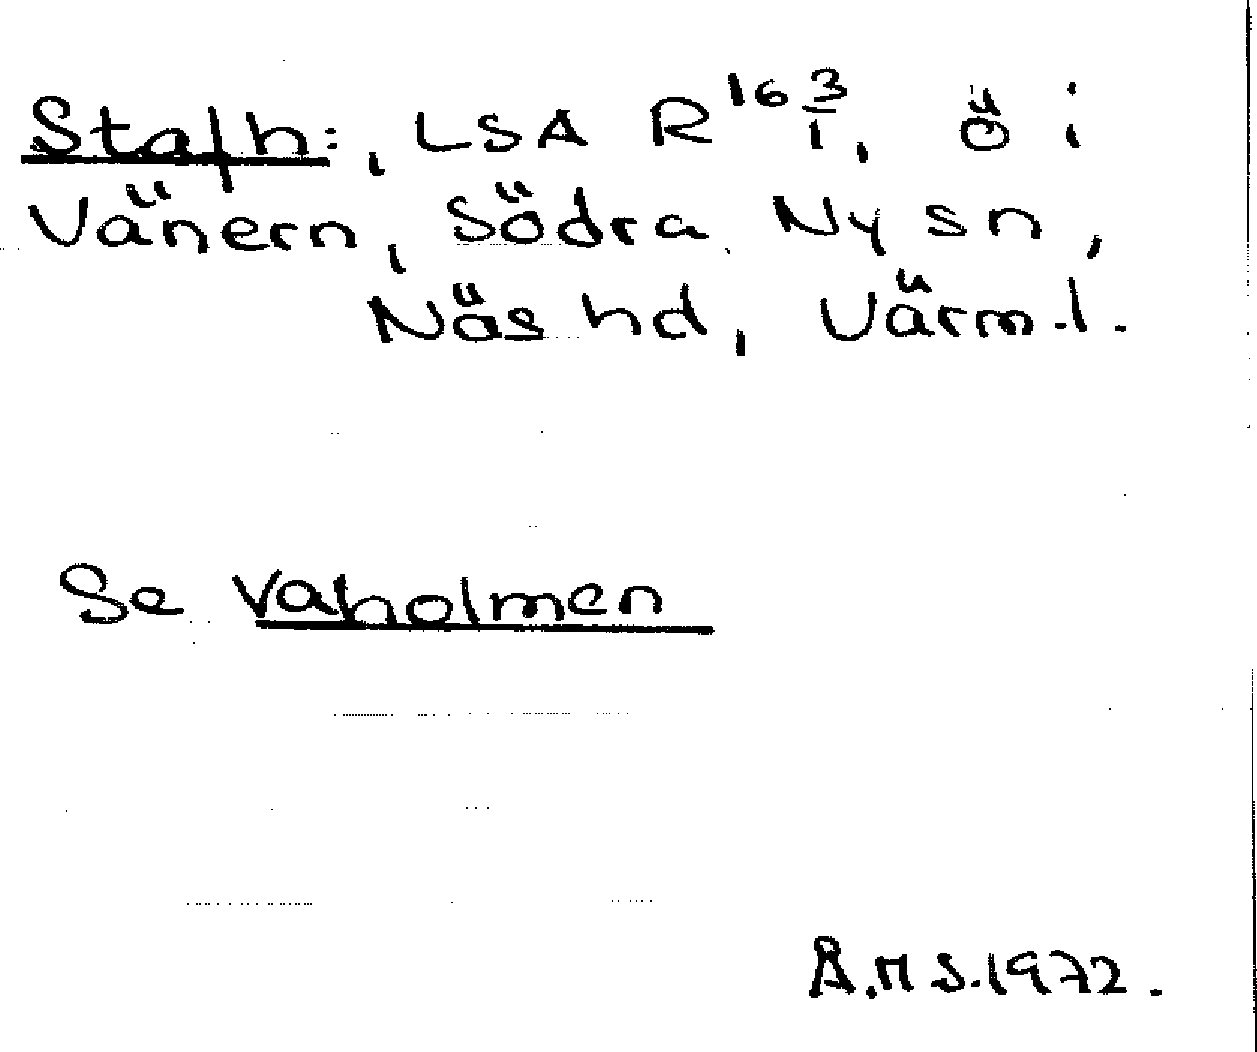 Stafh:, LSA R 16 3/1, ö i
Vänern, Södra Ny sn,
Näs hd, Värml.
Se Vaholmen
Å.M S.1972.